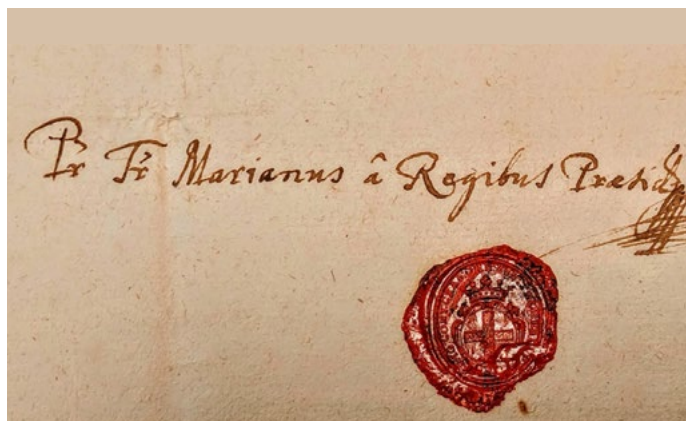 Pr Fr Marianus â Regibus Præsid